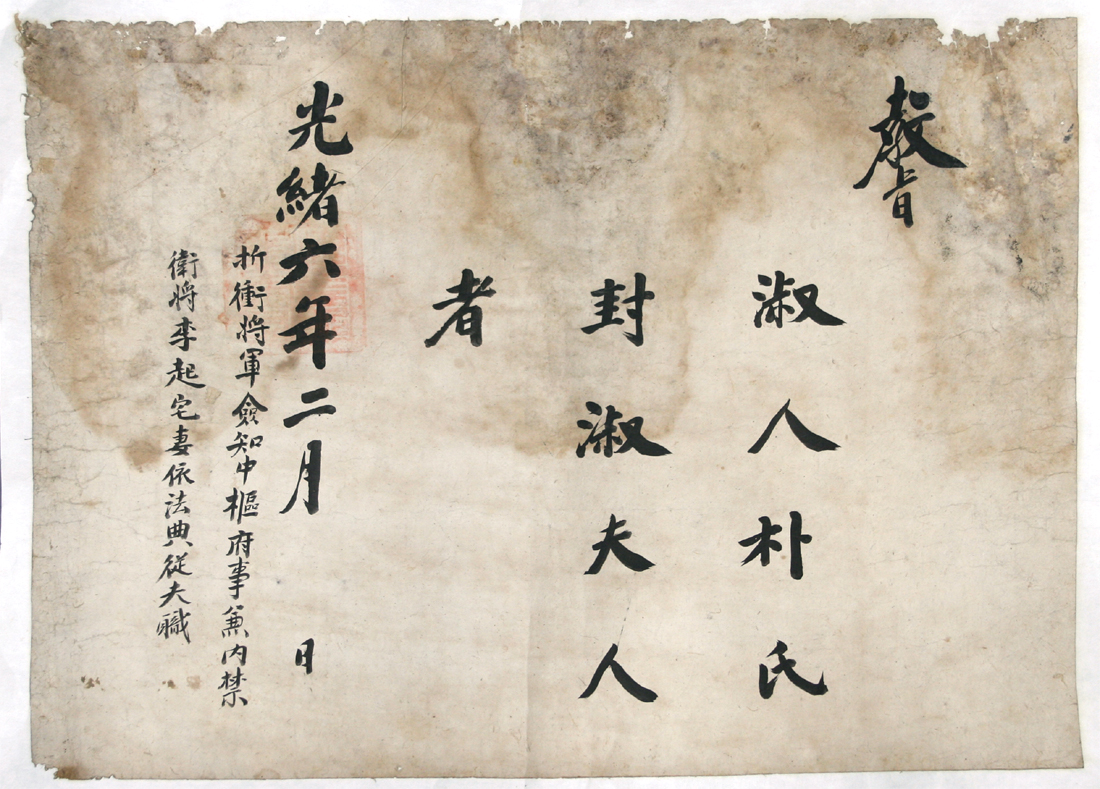 敎旨
淑人朴氏
封淑夫人
者
光緖六年二月 日
折衝將軍僉知中樞府事兼內禁
衛將李起宅妻依法典從夫職